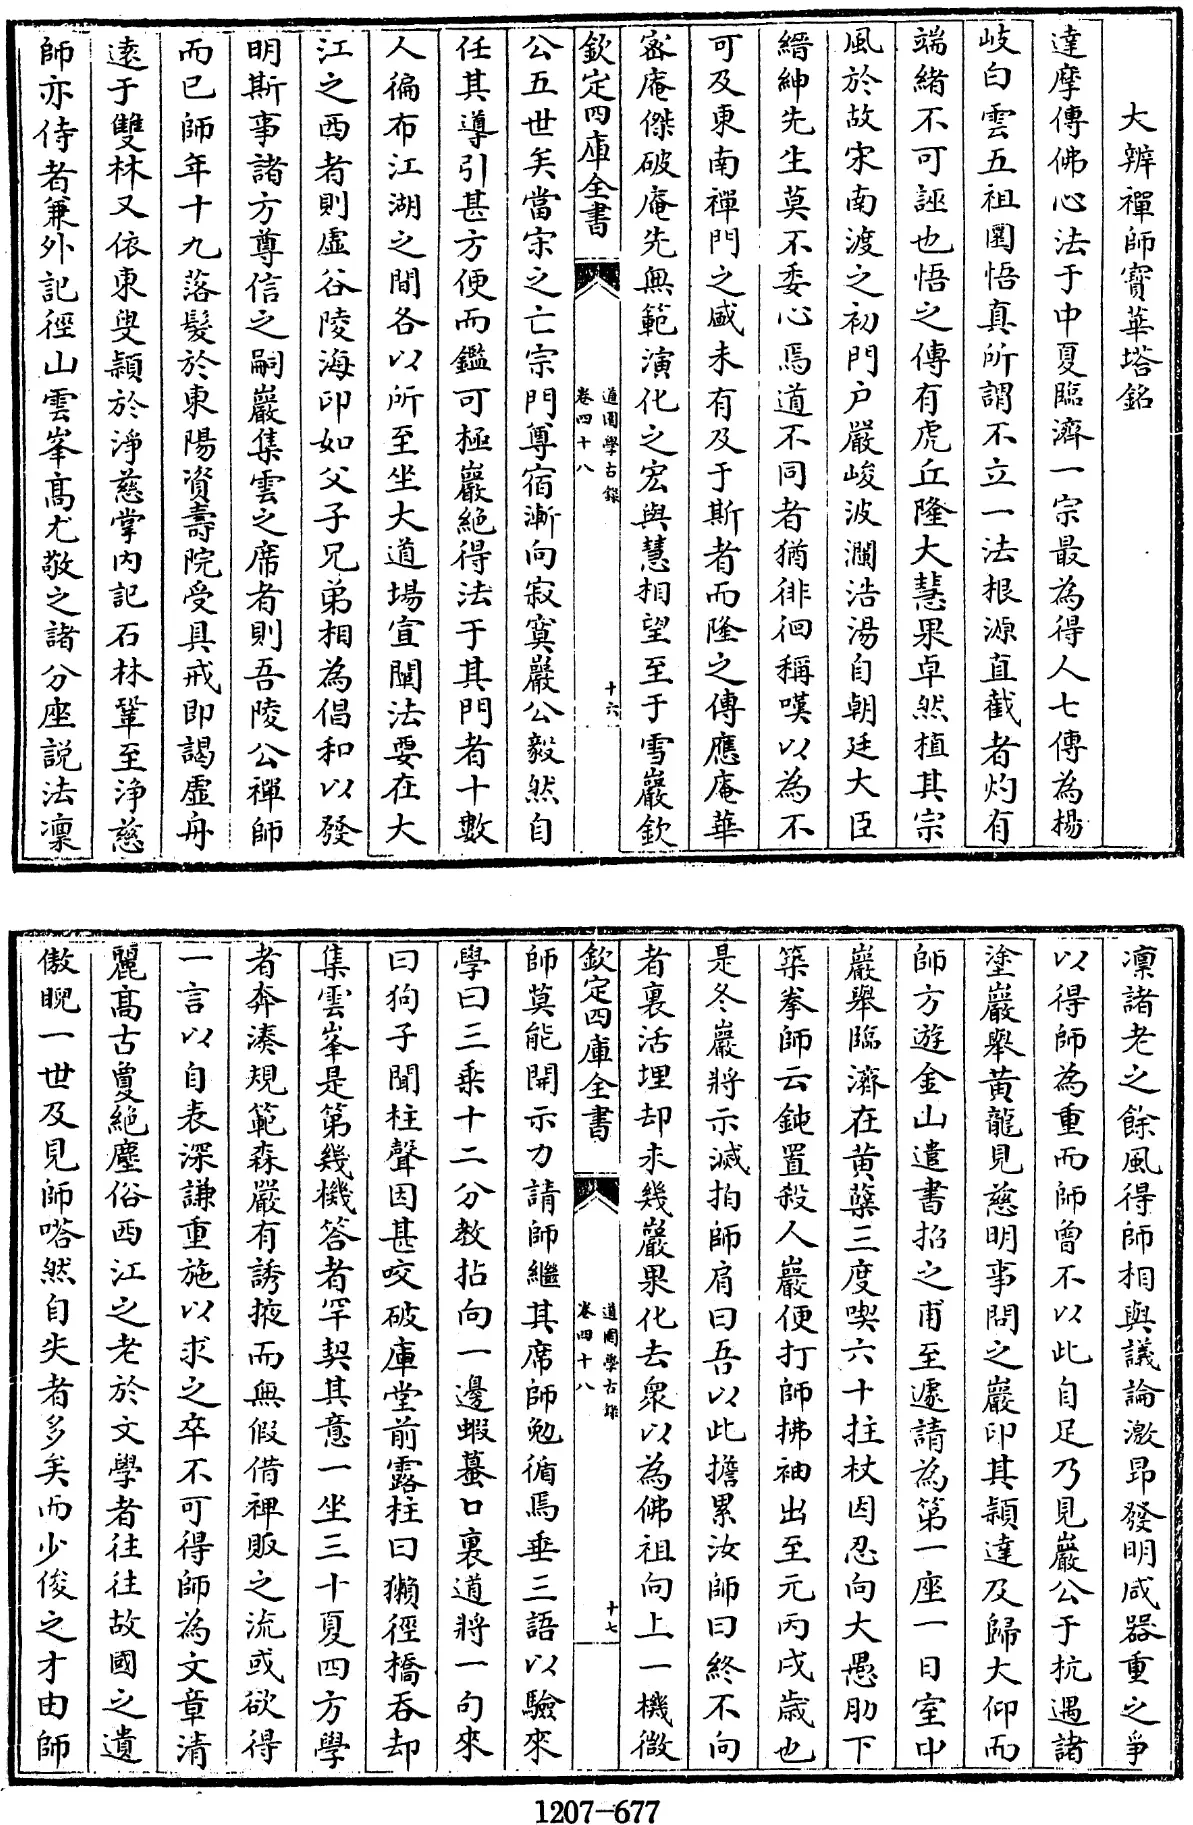 大辨禪師寳華塔銘
達摩傳佛心法于中夏臨濟一宗最為得人七傳為楊
岐白雲五祖圜悟真所謂不立一法根源直截者灼有
端緒不可誣也悟之傳有虎丘隆大慧果卓然植其宗
風於故宋南渡之初門户嚴峻波瀾浩湯自朝廷大臣
縉紳先生莫不委心焉道不同者猶徘徊稱嘆以為不
可及東南禪門之盛未有及于斯者而隆之傳應庵華
宻庵傑破庵先無範演化之宏與慧相望至于雪巖欽
欽定四庫全書
道園學古錄
卷四十八
十六
公五世矣當宋之亡宗門尊宿漸向寂寞巖公毅然自
任其導引甚方便而鑑可極巖絶得法于其門者十數
人徧布江湖之間各以所至坐大道場宣闡法要在大
江之西者則虛谷陵海印如父子兄弟相為倡和以發
明斯事諸方尊信之嗣巖集雲之席者則吾陵公禪師
而已師年十九落髮於東陽資壽院受具戒即謁虛舟
遠于雙林又依東叟穎於淨慈掌内記石林鞏至淨慈
師亦侍者兼外記徑山雲峯髙尤敬之諸分座說法凛
凛諸老之餘風得師相與議論激昂發明咸器重之爭
以得師為重而師曾不以此自足乃見巖公于杭遇諸
塗巖舉黄龍見慈明事問之巖印其穎達及歸大仰而
師方遊金山遣書招之甫至遽請為第一座一日室中
巖舉臨濟在黄蘗三度喫六十拄杖因忍向大愚肋下
築拳師云鈍置殺人巖便打師拂袖出至元丙戌歳也
是冬巖將示滅拍師肩曰吾以此擔累汝師曰終不向
者裏活埋却未幾巖果化去衆以為佛祖向上一機微
欽定四庫全書
道園學古錄
卷四十八
十七
師莫能開示力請師繼其席師勉循焉垂三語以驗來
學曰三乗十二分教拈向一邊蝦蟇口裏道將一句來
曰狗子聞柱聲因甚咬破庫堂前露柱曰獺徑橋吞却
集雲峯是第幾機答者罕契其意一坐三十夏四方學
者奔湊規範森嚴有誘掖而無假借裨販之流或欲得
一言以自表深謙重施以求之卒不可得師為文章清
麗髙古夐絶塵俗西江之老於文學者往往故國之遺
傲睨一世及見師嗒然自失者多矣而少俊之才由師
1207-677